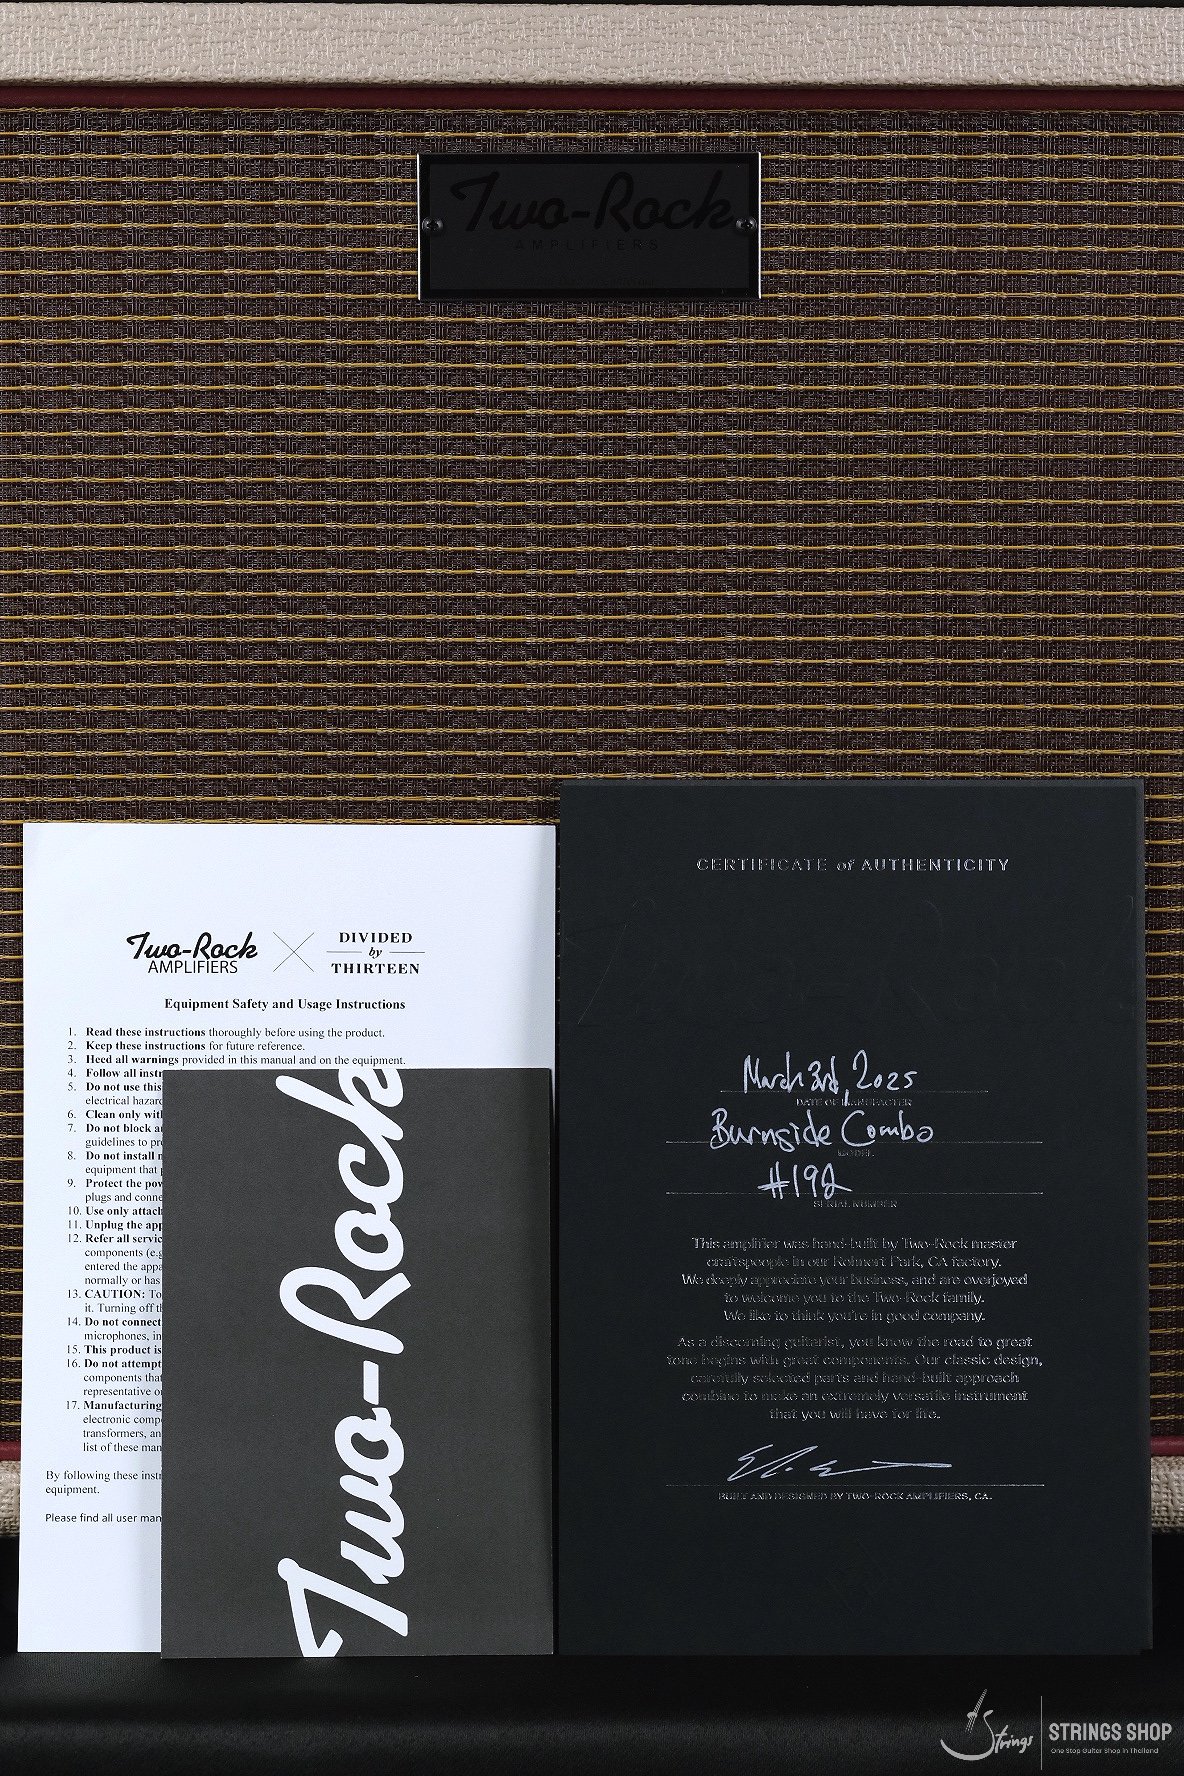 Two-Rock
AMPLIFIERS
Two-Rock
AMPLIFIERS
DIVIDED
by
THIRTEEN
Equipment Safety and Usage Instructions
1. Read these instructions thoroughly before using the product.
2. Keep these instructions for future reference.
3. Heed all warnings provided in this manual and on the equipment.
4. Follow all instr
5. Do not use this
electrical hazard
6. Clean only with
7. Do not block a
guidelines to pr
8. Do not install n
equipment that
9. Protect the pow
plugs and conne
10. Use only attach
11. Unplug the app
12. Refer all servic
components (e.g
entered the appa
normally or has
13. CAUTION: To
it. Turning off th
14. Do not connect
microphones, in
15. This product is
16. Do not attempt
components that
representative o
17. Manufacturing
electronic comp
transformers, an
list of these man
By following these instr
equipment.
Please find all user man
Two-Rock
CERTIFICATE of AUTHENTICITY
March 3rd, 2025
DATE OF MANUFACTER
Burnside Combo
MODEL
#192
SERIAL NUMBER
This amplifier was hand-built by Two-Rock master
craftspeople in our Rohnert Park, CA factory.
We deeply appreciate your business, and are overjoyed
to welcome you to the Two-Rock family.
We like to think you're in good company.
As a discerning guitarist, you know the road to great
tone begins with great components. Our classic design,
carefully selected parts and hand-built approach
combine to make an extremely versatile instrument
that you will have for life.
BUILT AND DESIGNED BY TWO-ROCK AMPLIFIERS, CA.
Strings
STRINGS SHOP
One Stop Guitar Shop in Thailand